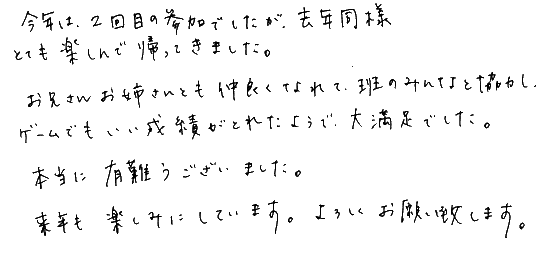 今年は、2回目の参加でしたが、去年同様
とても楽しんで帰ってきました。
お兄さんお姉さんとも仲良くなれて、班のみんなと協力し、
ゲームでもいい成績がとれたようで、大満足でした。
本当に有難うございました。
来年も楽しみにしています。よろしくお願い致します。